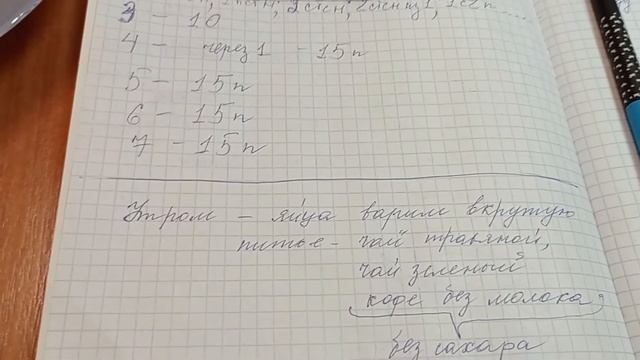 3 - 10
4 - через 1 - 15 п
5 - 15 п
6 - 15 п
7 - 15 п
Утром - яйца варим вкрутую
питье - чай травяной,
чай зеленый
(кофе без молока)
без сахара